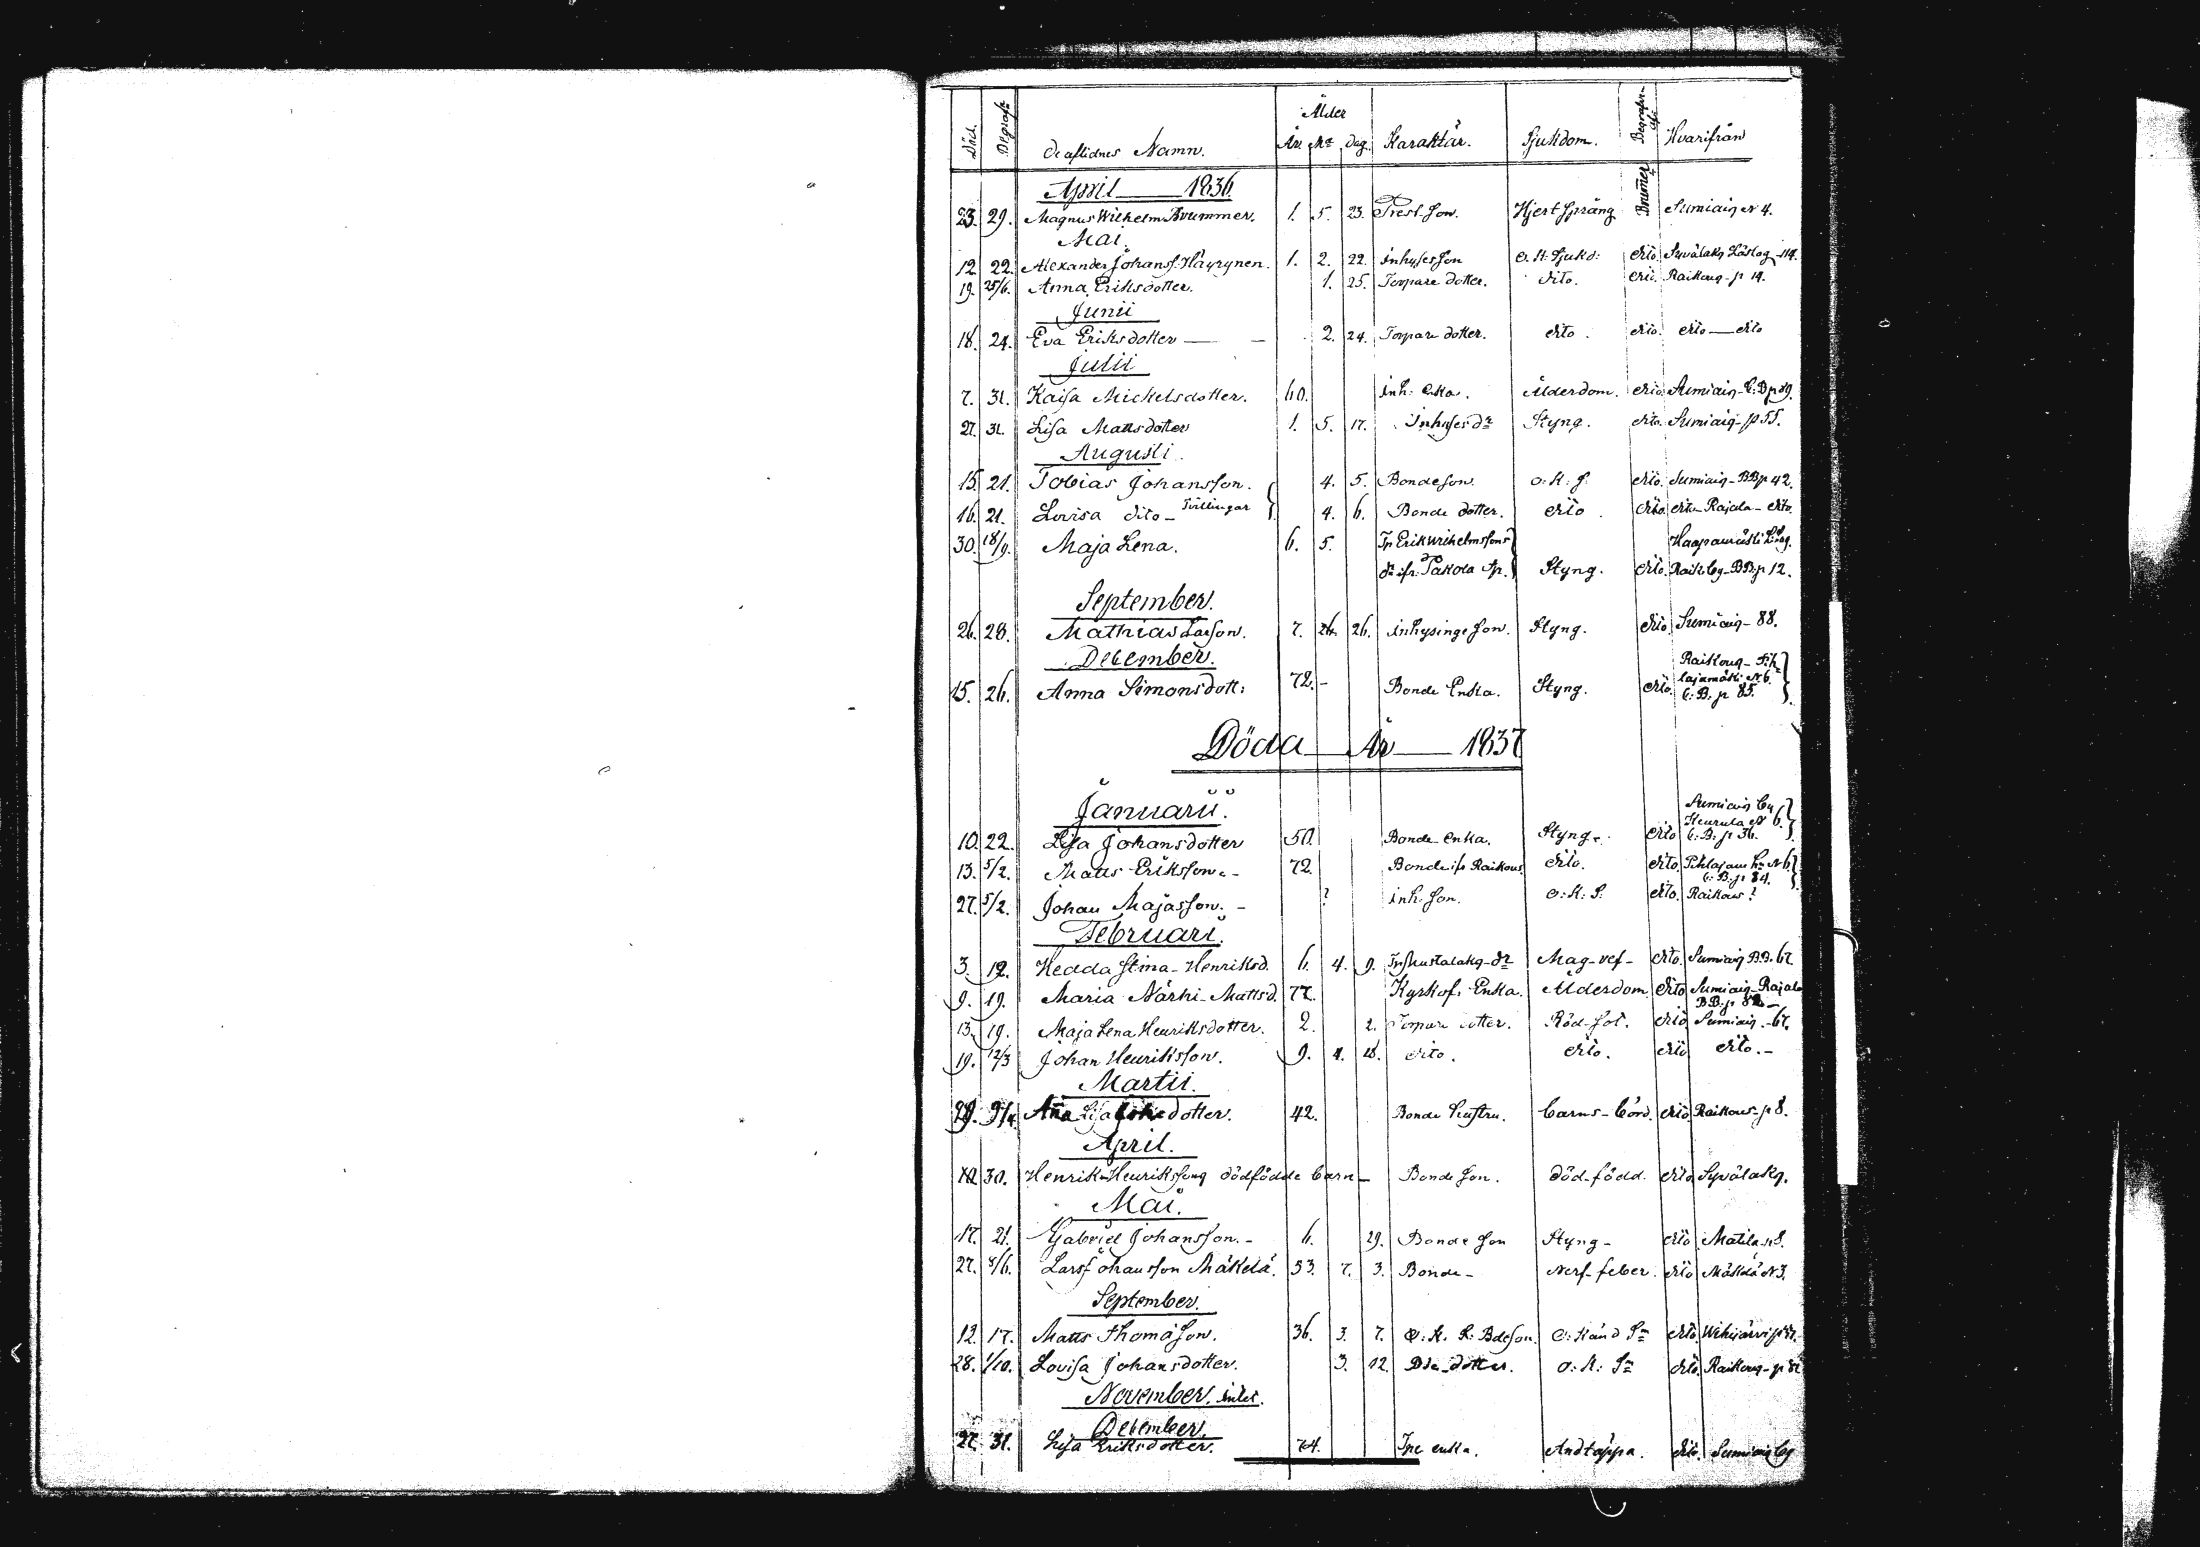 Ålder
Död. Begrafn de aflidnes Namn. År Mr dag. Karaktär. Sjukdom. Hvarifrån
April 1836
23. 29. Magnus Wilhelm Brummer. 1. 5. 23. Prest son. Hjertspräng Brumer Sumiais N 4.
Mai.
12 22. Alexander Johans: Häyrynen. 1. 2. 22. inhyses son o. K: sjukd: dito
19. 25/6. Anna Eriksdotter. 1. 25. Torpare dotter. dito. dito. p 14.
Junii
18. 24. Eva Eriksdotter 2. 24. Torpare dotter. dito. dito. dito dito
Julii
7. 31. Kaisa Mickelsdotter. 60. inh. enka. Ålderdom. dito. Sumiais
27. 31. Lisa Mattsdotter 1. 5. 17. Inhyses dr Styng. dito. Sumiais p 55.
Augusti.
15. 21. Tobias Johansson. 4. 5. Bondeson. o: K: S. dito. Sumiais BBp 42.
16. 21. Lovisa dito Tvillingar 4. 6. Bonde dotter. dito. dito. dito Rajala dito
30. 18/9. Maja Lena. 6. 5. Tp Erik Wilhelmsons
Styng. dito. BB:p 12.
September.
26. 28. Mathias Larson. 7. 26. inhysinge son. Styng. dito. Sumiais 88.
December.
15. 26. Anna Simonsdott: 72. Bonde Enka. Styng. dito. N 6. C: B: p 85.
Döda År 1837
Januarii.
10. 22. Lisa Johansdotter 50. Bonde enka. Styng. dito Sumiais by Keurula N 6. C: B: p 36.
13. 5/2. Matts Eriksson. 72. Bonde dito. dito. C: B: p 84.
27. 5/2. Johan Majasson. ? inh. son. o: K: S. dito. Raikous ?
Februari.
3. 12. Hedda Stina Henriksd. 6. 4. 9. dr Mag-ref dito. Sumiais B.B. 67.
9. 19. Maria Närhi Mattsd. 77. Enka. Ålderdom dito Sumiais Rajala
13. 19. Maja Lena Henriksdotter. 2. 2. Torpare dotter. Röd-sot. dito Sumiais 67.
19. 12/3 Johan Henriksson. 9. 4. 18. dito. dito. dito dito.
Martii.
29. 9/4. Anna Lisa dotter. 42. Bonde hustru. barns-börd. dito. Raikous p 8.
April.
30. Henrik Henrikssons dödfödde barn Bonde son. död-född. dito
Mai.
17. 21. Gabriel Johansson. 6. 29. Bonde son Styng dito Matila N 8.
27. 4/6. Lars Johansson Mäkelä. 53. 7. 3. Bonde Nerf-feber. dito Mäkelä N 3.
September.
12. 17. Matts Thomason. 36. 3. 7. o: Känd Sm dito.
28. 1/10. Lovisa Johansdotter. 3. 12. Bde dotter. o: K: Sm dito.
November. intet.
December.
27. 31. Lisa Eriksdotter. 74. enka. Andtäppa. dito. Sumiais by